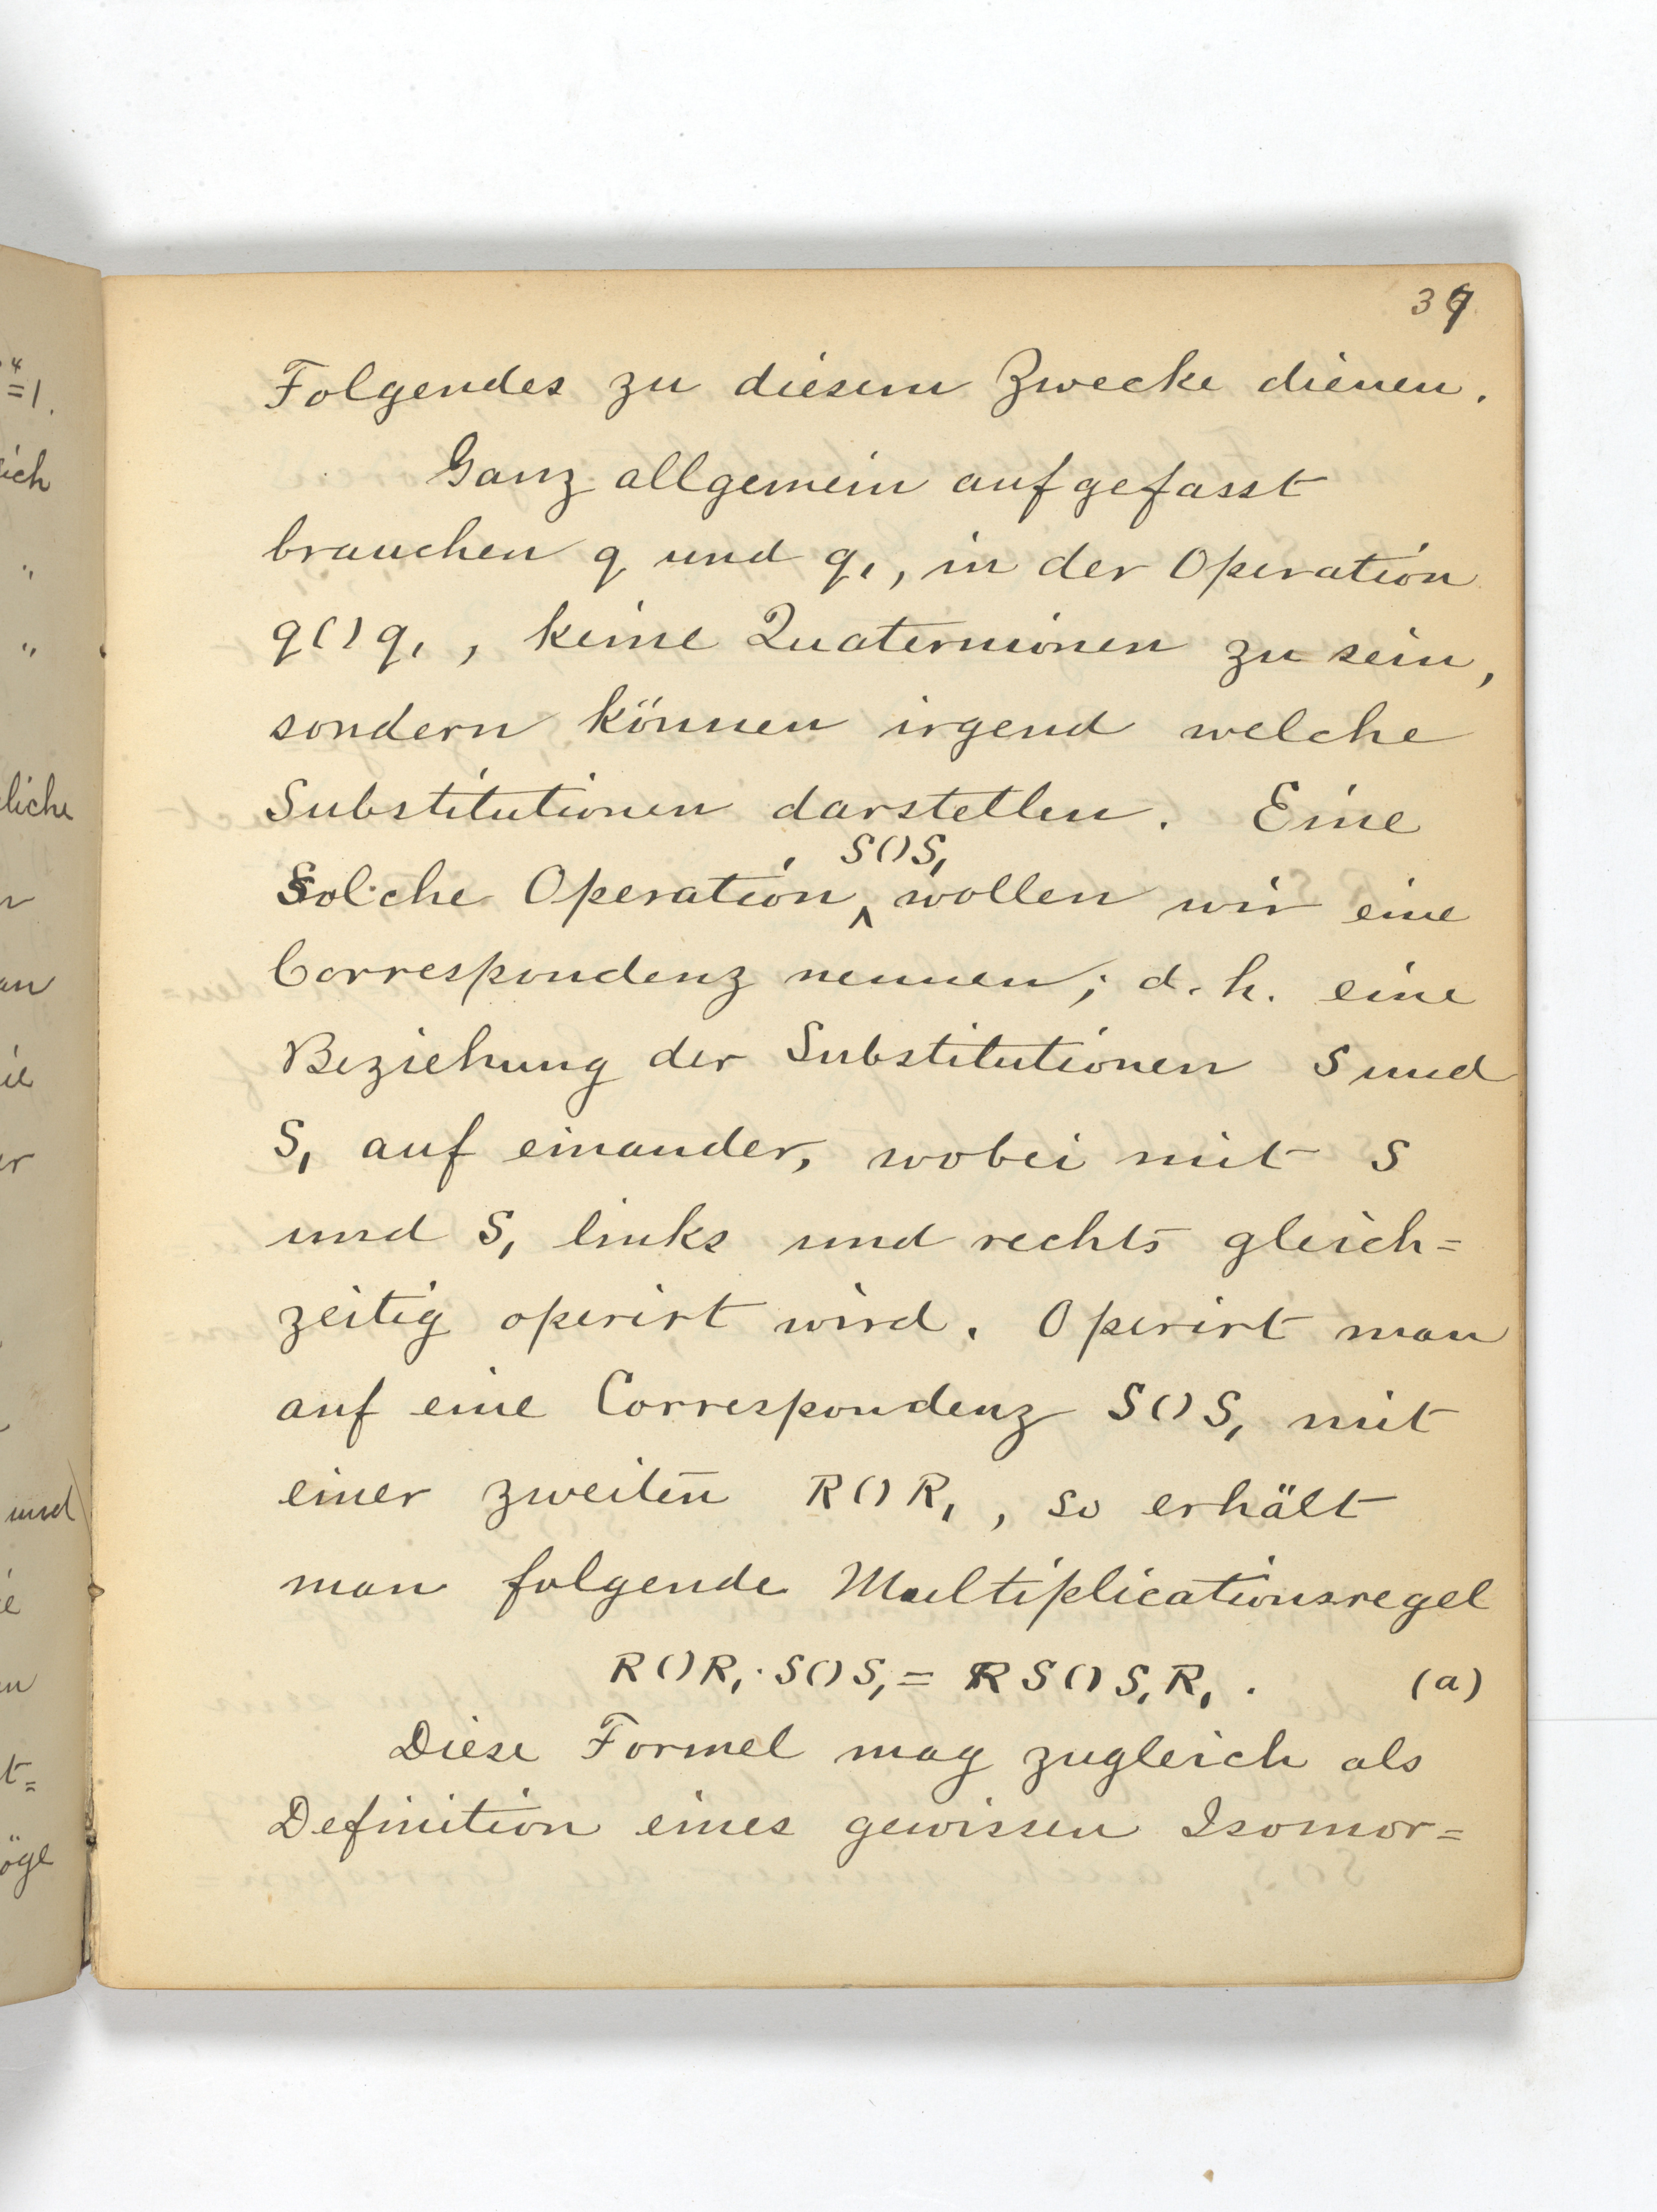 37
Folgendes zu diesem Zwecke dienen.
Ganz allgemein aufgefasst
brauchen q und q₁, in der Operation
q()q₁, keine Quaternionen zu sein,
sondern können irgend welche
Substitutionen darstellen. Eine
S()S₁
solche Operation ‸ wollen wir eine
Correspondenz nennen; d. h. eine
Beziehung der Substitutionen S und
S₁ auf einander, wobei mit S
und S₁ links und rechts gleich=
zeitig operirt wird. Operirt man
auf eine Correspondenz S()S₁ mit
einer zweiten R()R₁, so erhält
man folgende Multiplicationsregel
R()R₁·S()S₁ = RS()S₁R₁. (a)
Diese Formel mag zugleich als
Definition eines gewissen Isomor=
=1.
ich
"
"
liche
an
er
und
t=
öge